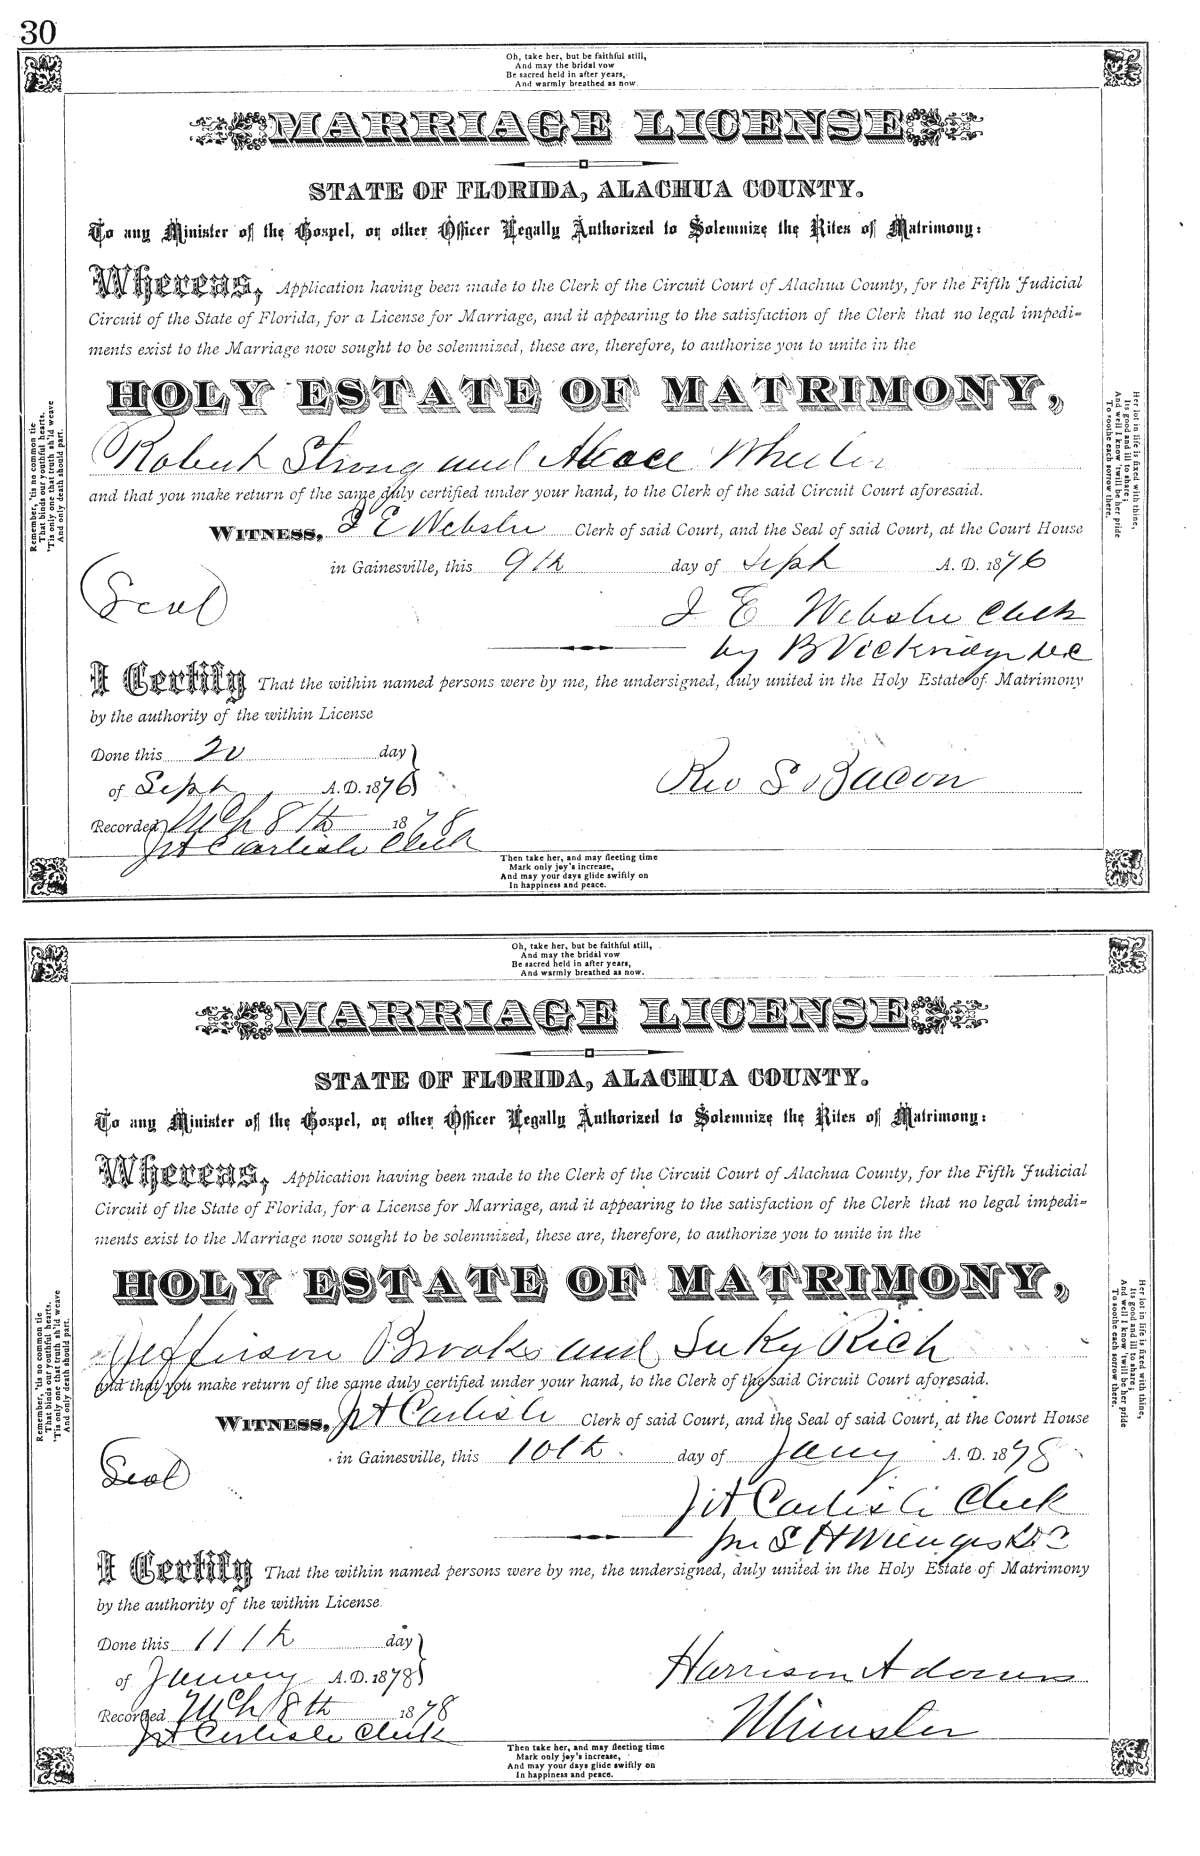 30
Oh, take her, but be faithful still,
And may the bridal vow
Be sacred held in after years,
And warmly breathed as now.
MARRIAGE LICENSE
STATE OF FLORIDA, ALACHUA COUNTY.
To any Minister of the Gospel, or other Officer Legally Authorized to Solemnize the Rites of Matrimony:
Whereas, Application having been made to the Clerk of the Circuit Court of Alachua County, for the Fifth Judicial
Circuit of the State of Florida, for a License for Marriage, and it appearing to the satisfaction of the Clerk that no legal impedi-
ments exist to the Marriage now sought to be solemnized, these are, therefore, to authorize you to unite in the
HOLY ESTATE OF MATRIMONY,
Robert Strong and Wheeler
and that you make return of the same duly certified under your hand, to the Clerk of the said Circuit Court aforesaid.
WITNESS, J E Webster Clerk of said Court, and the Seal of said Court, at the Court House
in Gainesville, this 9th day of Sept A. D. 1876
(Seal)
J E Webster Clerk
by B Vickridge DC
I Certify That the within named persons were by me, the undersigned, duly united in the Holy Estate of Matrimony
by the authority of the within License
Done this 20 day
of Sept A. D. 1876
Rev S Bacon
Recorded Mch 8th 1878
JA Carlisle Clerk
Then take her, and may fleeting time
Mark only joy's increase,
And may your days glide swiftly on
In happiness and peace.
Remember, 'tis no common tie
That binds our youthful hearts.
'Tis only one that truth sh'ld weave
And only death should part.
Her lot in life is fixed with thine,
Its good and ill to share;
And well I know 'twill be her pride
To soothe each sorrow there.
Oh, take her, but be faithful still,
And may the bridal vow
Be sacred held in after years,
And warmly breathed as now.
MARRIAGE LICENSE
STATE OF FLORIDA, ALACHUA COUNTY.
To any Minister of the Gospel, or other Officer Legally Authorized to Solemnize the Rites of Matrimony:
Whereas, Application having been made to the Clerk of the Circuit Court of Alachua County, for the Fifth Judicial
Circuit of the State of Florida, for a License for Marriage, and it appearing to the satisfaction of the Clerk that no legal impedi-
ments exist to the Marriage now sought to be solemnized, these are, therefore, to authorize you to unite in the
HOLY ESTATE OF MATRIMONY,
Jefferson Brooks and Suky Rich
and that you make return of the same duly certified under your hand, to the Clerk of the said Circuit Court aforesaid.
WITNESS, JA Carlisle Clerk of said Court, and the Seal of said Court, at the Court House
in Gainesville, this 10th day of Jany A. D. 1878
(Seal)
JA Carlisle Clerk
per S H Wienges
I Certify That the within named persons were by me, the undersigned, duly united in the Holy Estate of Matrimony
by the authority of the within License
Done this 11th day
of January A. D. 1878
Harrison Adams
Recorded Mch 8th 1878
Minster
JA Carlisle Clerk
Then take her, and may fleeting time
Mark only joy's increase,
And may your days glide swiftly on
In happiness and peace.
Remember, 'tis no common tie
That binds our youthful hearts.
'Tis only one that truth sh'ld weave
And only death should part.
Her lot in life is fixed with thine,
Its good and ill to share;
And well I know 'twill be her pride
To soothe each sorrow there.